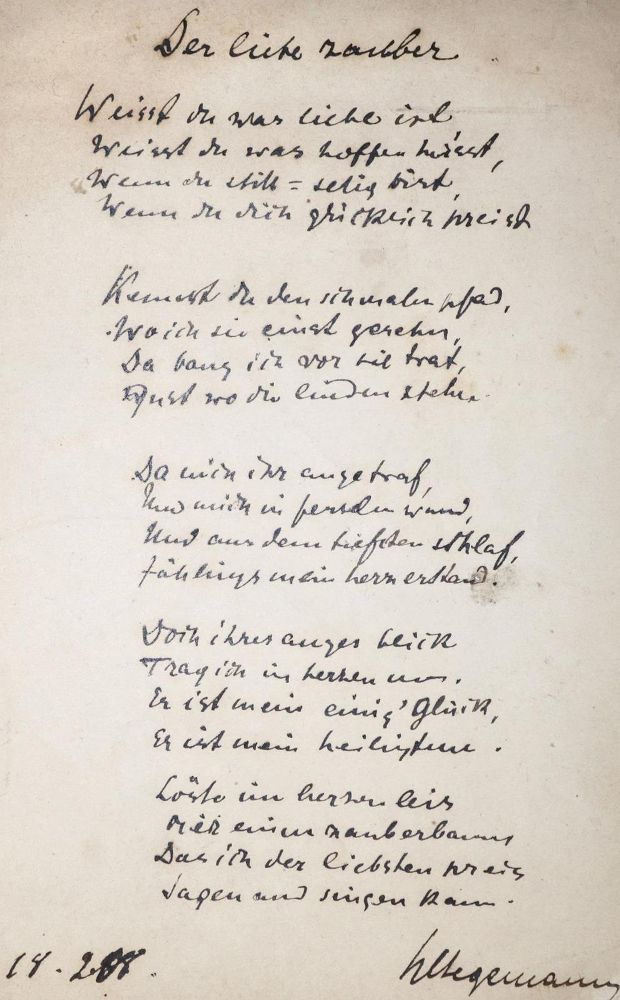 Der liebe zauber
Weisst du was liebe ist
Weisst du was hoffen heisst,
Wenn du still = selig bist,
Wenn du dich glücklich preist
Kennst du den schmalen pfad,
Wo ich sie einst gesehn,
Da bang ich vor sie trat,
Just wo die linden stehn.
Da mich ihr auge traf,
Und mich in fesseln wand,
Und aus dem tiefsten schlaf,
Jählings mein herz erstand.
Doch ihres auges blick
Trag ich im herzen um.
Er ist mein einig' Glück,
Er ist mein heiligtum.
Löste im herzen leis
mir einen zauberbann
Das ich der liebsten preis
Sagen und singen kann.
Hegemann